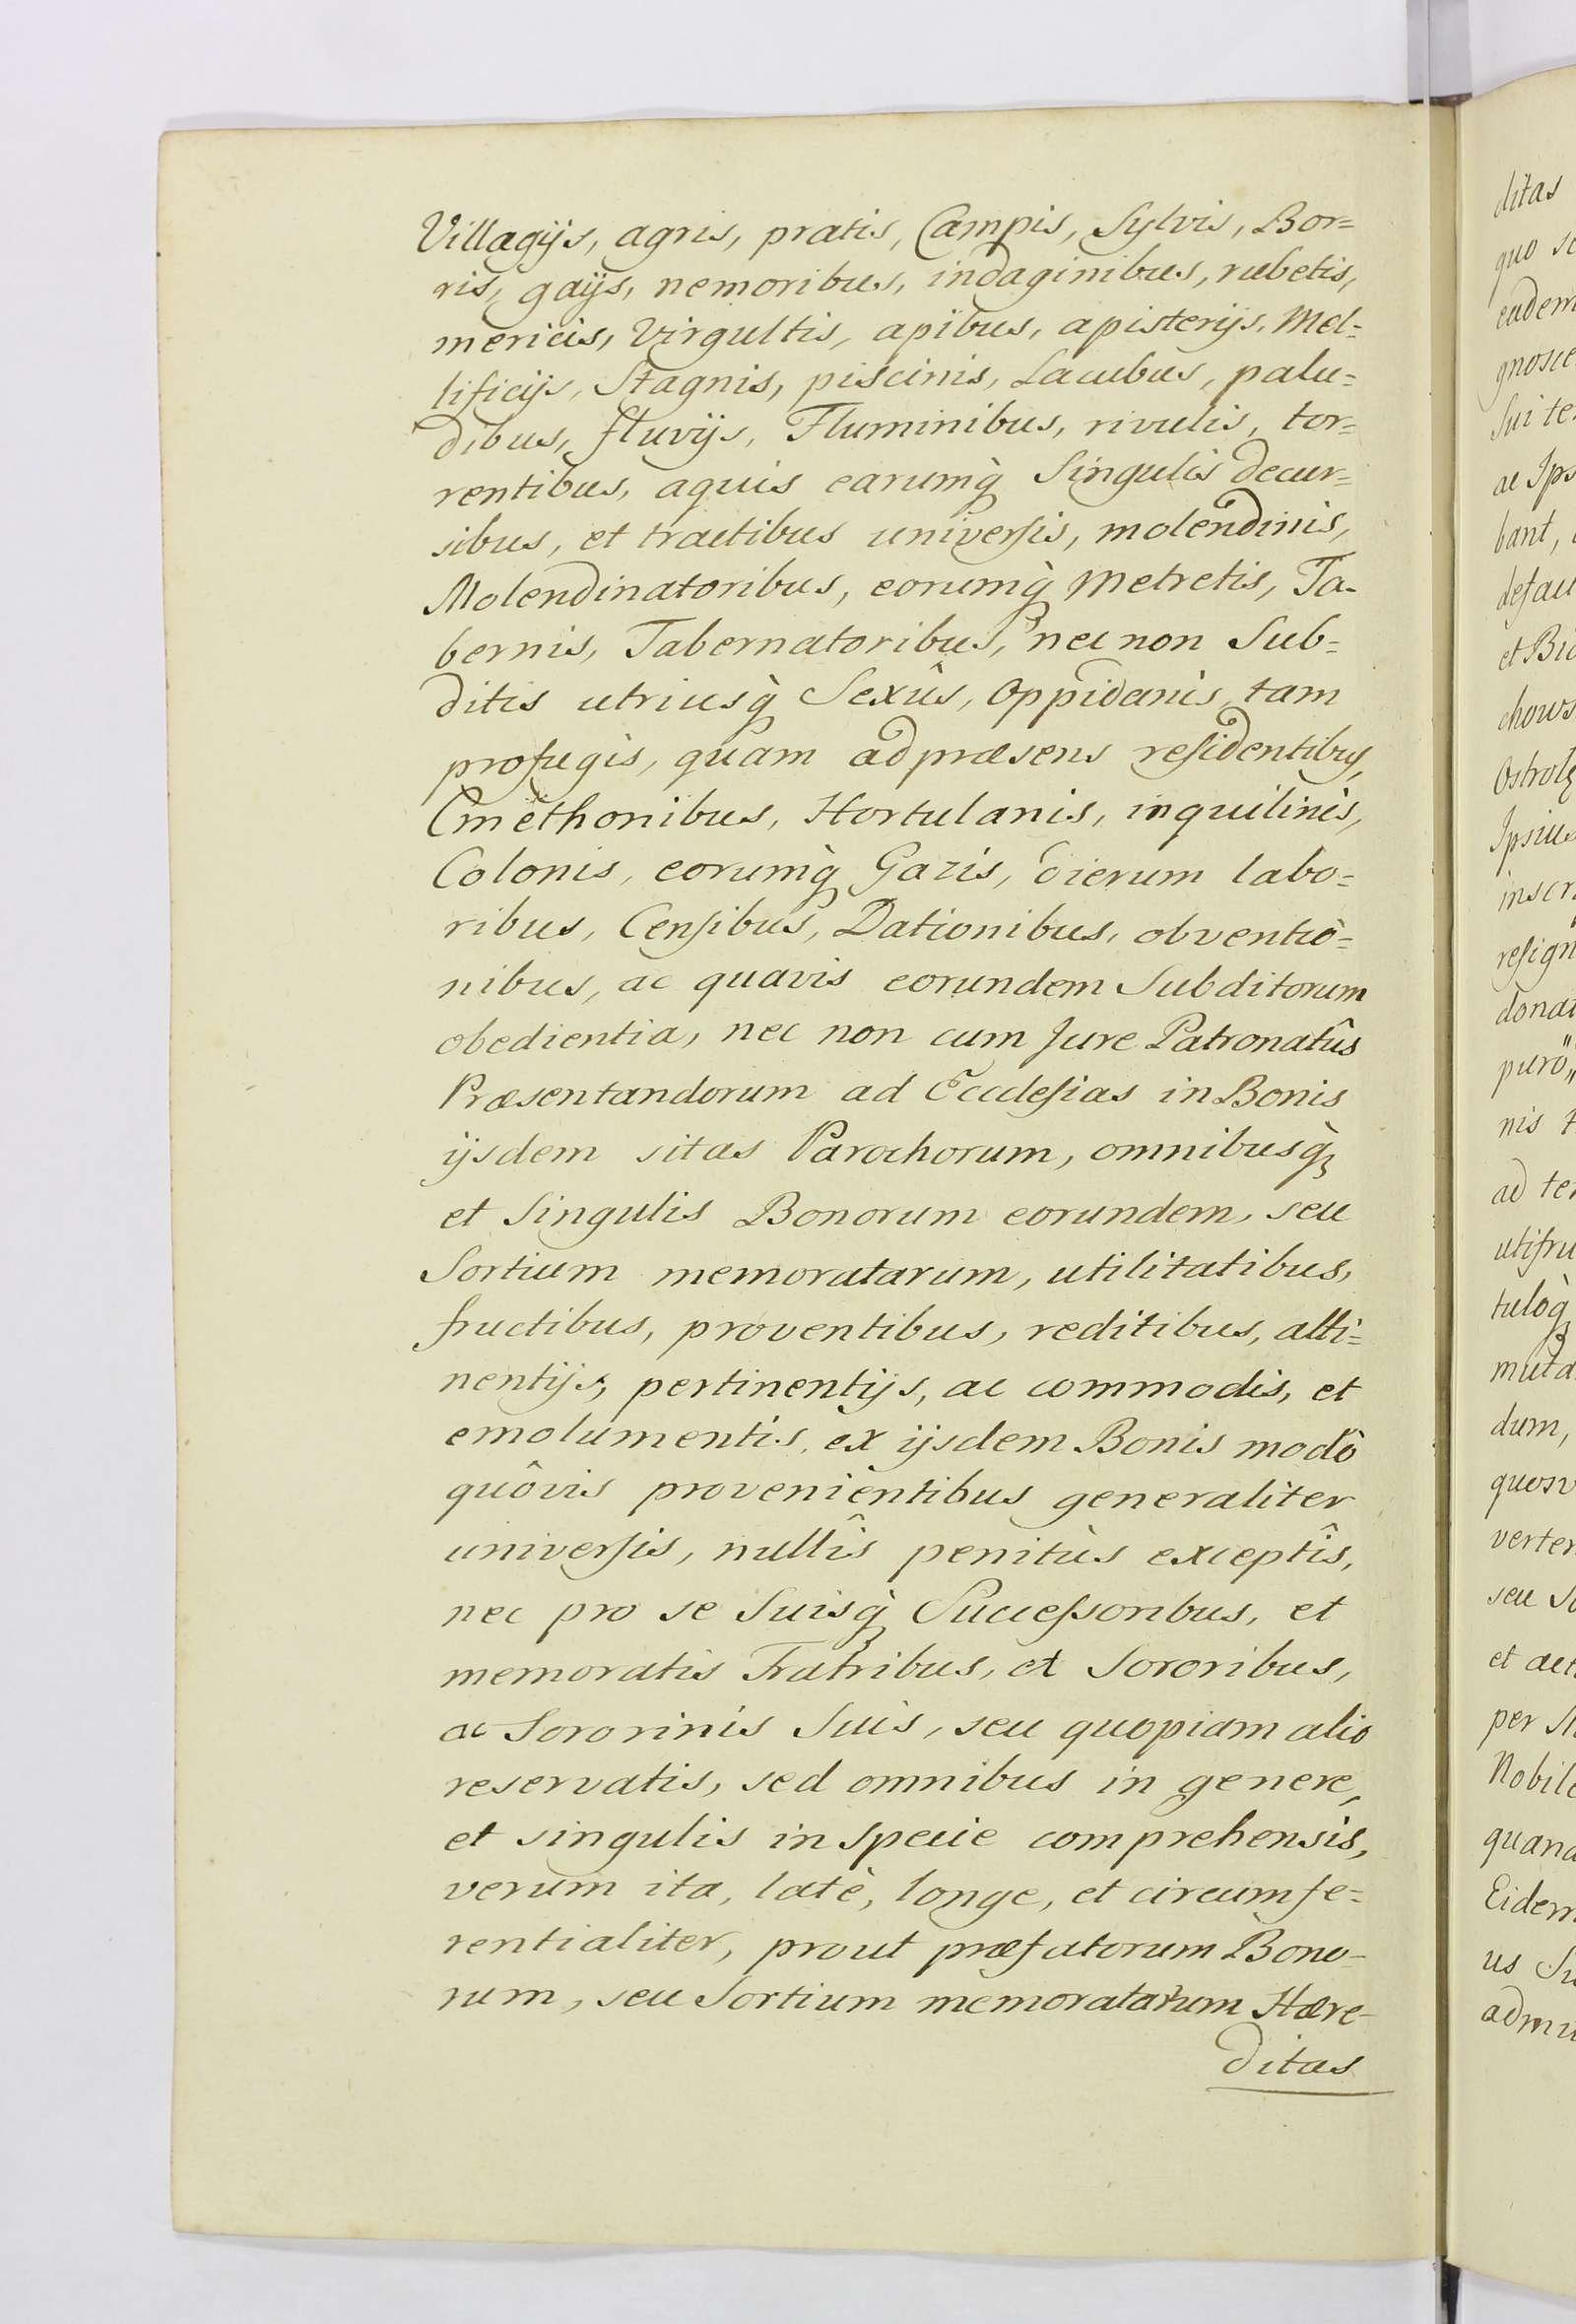 Villagijs, agris, pratis, Campis, Sylvis, Bor=
ris, gaijs, nemoribus, indaginibus, rubetis,
mericis, Virgultis, apibus, apisterijs, Mel=
lificijs, Stagnis, piscinis, Lacubus, palu=
dibus, fluvijs, Fluminibus, rivulis, tor=
rentibus, aquis earumq̀ Singulis decur=
sibus, et tractibus universis, molendinis,
Molendinatoribus, eorumq̀ Metretis, Ta-
bernis, Tabernatoribus, nec non Sub=
ditis utriusq̀ Sexûs, Oppidanis, tam
profugis, quam ad præsens residentibus,
Cmethonibus, Hortulanis, inquilinis,
Colonis, eorumq̀ Gazis, dierum labo=
ribus, Censibus, Dationibus, obventio=
nibus, ac quavis eorundem Subditorum
obedientia, nec non cum Jure Patronatûs
Præsentandorum ad Ecclesias in Bonis
ijsdem sitas Parochorum, omnibusq̀
et Singulis Bonorum eorundem, seu
Sortium memoratarum, utilitatibus,
fructibus, proventibus, reditibus, atti=
nentijs, pertinentijs, ac commodis, et
emolumentis, ex ijsdem Bonis modô
quôvis provenientibus generaliter
universis, nullîs penitùs exceptîs,
nec pro se Suisq̀ Successoribus, et
memoratis Fratribus, et Sororibus,
ac Sororinis Suis, seu quopiam alio
reservatis, sed omnibus in genere,
et singulis in Specie comprehensis,
verum ita, latè, longe, et circumfe=
rentialiter, prout præfatorum Bono-
rum, seu Sortium memoratarum Hære-
ditas
ditas
quo
eadem
gnosce
Sui te
ac Ips
bant,
et
chows
Ipsius
inscr
resign
donat
nis
ad te
tuloq̀
muta
dum,
quosv
verter
seu
et act
per
Nobile
quand
Eidem
us